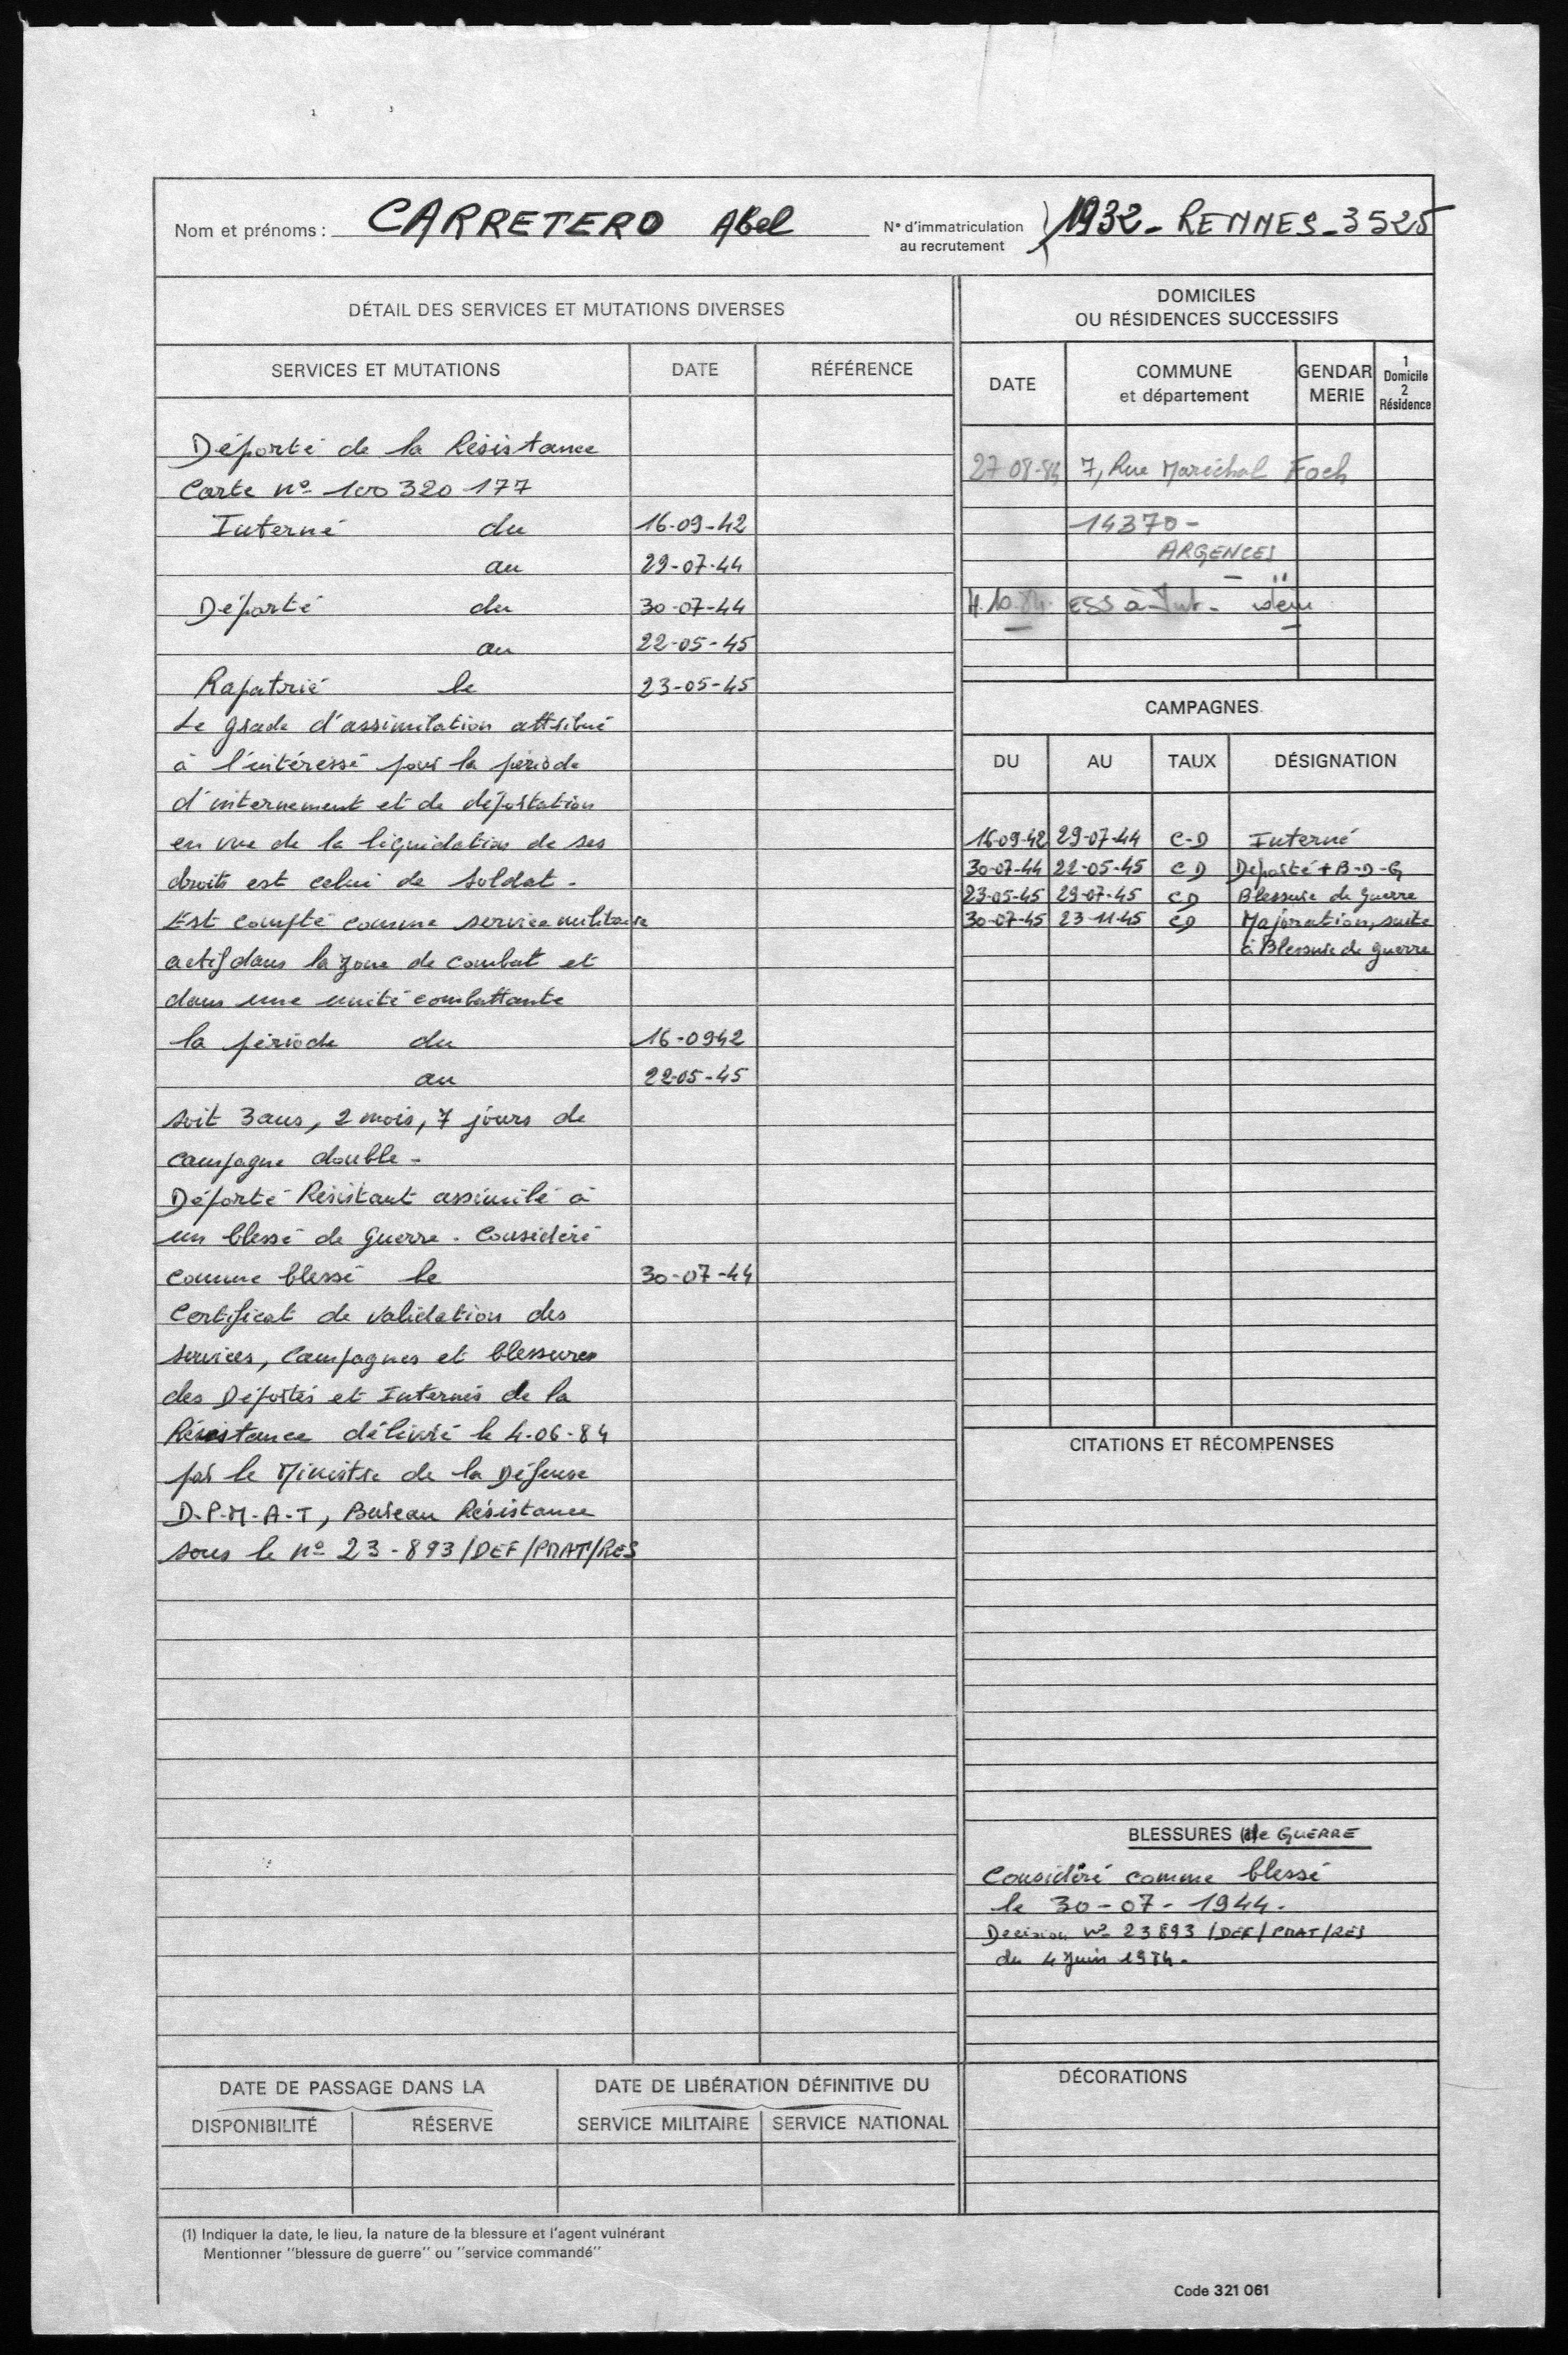 Nom et prénoms : CARRETERO Abel
N° d'immatriculation
au recrutement
1932 - RENNES - 3525
DÉTAIL DES SERVICES ET MUTATIONS DIVERSES
SERVICES ET MUTATIONS DATE RÉFÉRENCE
Déporté de la Résistance
Carte n° 100 320 177
Interné du 16-09-42
au 29-07-44
Déporté du 30-07-44
au 22-05-45
Rapatrié le 23-05-45
Le grade d'assimilation attribué
à l'intéressé pour la période
d'internement et de déportation
en vue de la liquidation de ses
droits est celui de soldat.
Est compté comme service militaire
actif dans la zone de combat et
dans une unité combattante
la période du 16-0942
au 22-05-45
soit 3 ans, 2 mois, 7 jours de
campagne double -
Déporté Résistant assimilé à
un blessé de Guerre. Considéré
comme blessé le 30-07-44
Certificat de validation des
services, Campagnes et blessures
des Déportés et Internés de la
Résistance délivré le 4-06-84
par le Ministre de la Défense
D.P.M.A.T, Bureau Résistance
sous le n° 23-893/DEF/PMAT/RES
DATE DE PASSAGE DANS LA
DISPONIBILITÉ RÉSERVE
DATE DE LIBÉRATION DÉFINITIVE DU
SERVICE MILITAIRE SERVICE NATIONAL
DOMICILES
OU RÉSIDENCES SUCCESSIFS
DATE COMMUNE et département GENDAR MERIE 1 Domicile 2 Résidence
27-08-84 7, Rue Maréchal Foch
14370 -
ARGENCES
ESS à idem
CAMPAGNES
DU AU TAUX DÉSIGNATION
16-09-42 29-07-44 C-D Interné
30-07-44 22-05-45 C D Déporté + B-D-G
23-05-45 29-07-45 CD Blessure de Guerre
30-07-45 23-11-45 CD Majoration, suite
à Blessure de guerre
CITATIONS ET RÉCOMPENSES
BLESSURES de GUERRE
Considéré comme blessé
le 30-07-1944.
Decision N° 23893/DEF/PMAT/RES
du 4 Juin 1984.
DÉCORATIONS
(1) Indiquer la date, le lieu, la nature de la blessure et l'agent vulnérant
Mentionner "blessure de guerre" ou "service commandé"
Code 321 061